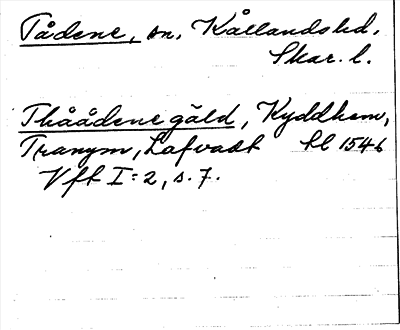 Tådene, sn, Kållandshd,
Skar. l.
Thåådene gäld, Kyddhem,
Tranym, Lafvadt hl 1546
Vft I:2, s. 7.